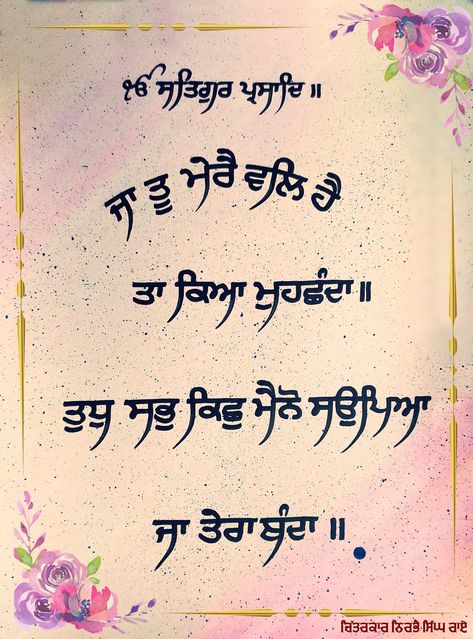 ੴ ਸਤਿਗੁਰ ਪ੍ਰਸਾਦਿ ॥
ਜਾ ਤੂ ਮੇਰੈ ਵਲਿ ਹੈ
ਤਾ ਕਿਆ ਮੁਹਛੰਦਾ ॥
ਤੁਧੁ ਸਭੁ ਕਿਛੁ ਮੈਨੋ ਸਉਪਿਆ
ਜਾ ਤੇਰਾ ਬੰਦਾ ॥
ਚਿੱਤਰਕਾਰ ਨਿਰਭੈ ਸਿੰਘ ਰਾਏ